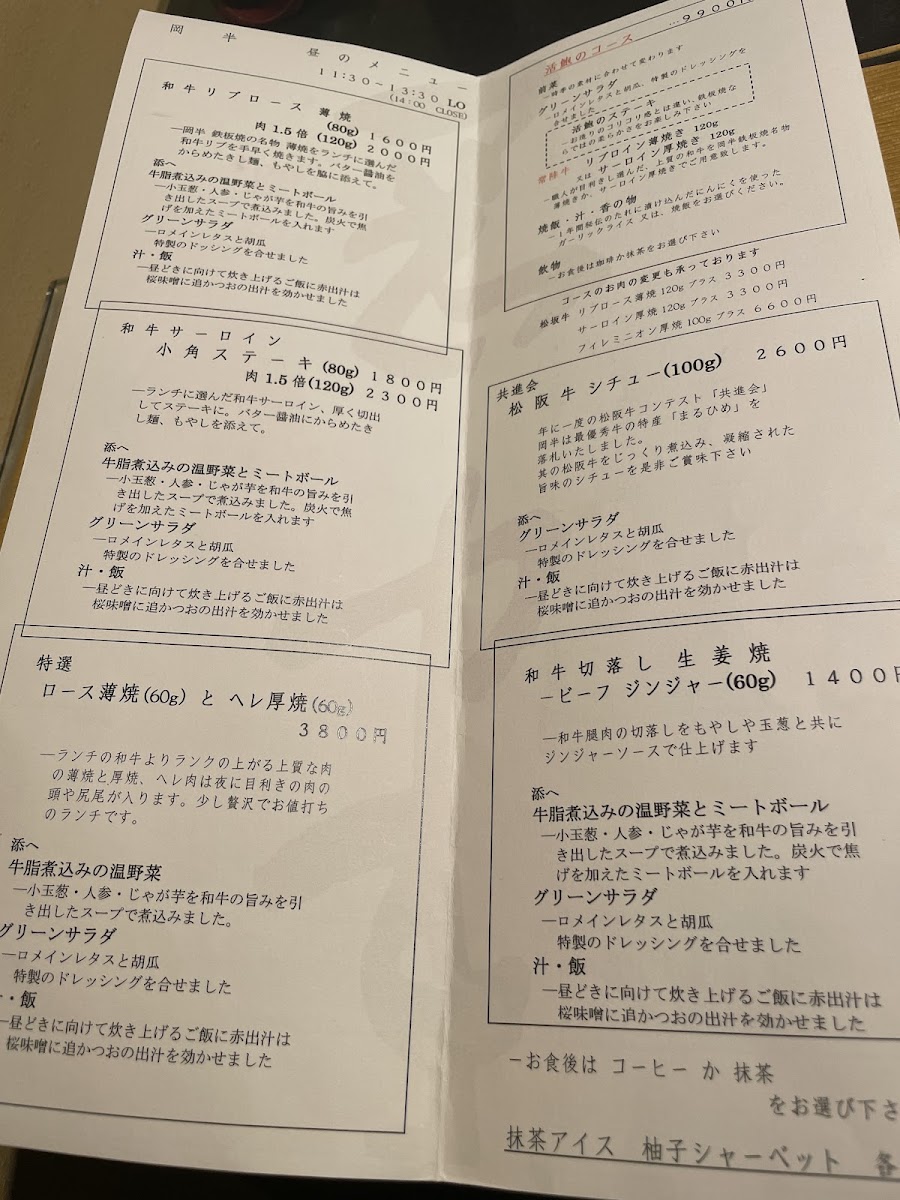 岡半 昼のメニュー
11:30-13:30 LO
(14:00 CLOSE)
和牛リブロース 薄焼
(80g) 1600円
肉1.5倍(120g) 2000円
―岡半 鉄板焼の名物 薄焼をランチに選んだ
和牛リブを手早く焼きます。バター醤油を
からめたきし麺、もやしを脇に添えて。
添へ
牛脂煮込みの温野菜とミートボール
―小玉葱・人参・じゃが芋を和牛の旨みを引
き出したスープで煮込みました。炭火で焦
げを加えたミートボールを入れます
グリーンサラダ
―ロメインレタスと胡瓜
特製のドッシングを合せました
汁・飯
―昼どきに向けて炊き上げるご飯に赤出汁は
桜味噌に追かつおの出汁を効かせました
和牛サーロイン
小角ステーキ(80g) 1800円
肉1.5倍(120g) 2300円
―ランチに選んだ和牛サーロイン、厚く切出
してステーキに。バター醤油にからめたき
し麺、もやしを添えて。
添へ
牛脂煮込みの温野菜とミートボール
―小玉葱・人参・じゃが芋を和牛の旨みを引
き出したスープで煮込みました。炭火で焦
げを加えたミートボールを入れます
グリーンサラダ
―ロメインレタスと胡瓜
特製のドレッシングを合せました
汁・飯
―昼どきに向けて炊き上げるご飯に赤出汁は
桜味噌に追かつおの出汁を効かせました
特選
ロース薄焼(60g) と ヘレ厚焼(60g)
3800円
―ランチの和牛よりランクの上がる上質な肉
の薄焼と厚焼、ヘレ肉は夜に目利きの肉の
頭や尻尾が入ります。少し贅沢でお値打ち
のランチです。
添へ
牛脂煮込みの温野菜
―小玉葱・人参・じゃが芋を和牛の旨みを引
き出したスープで煮込みました。
グリーンサラダ
―ロメインレタスと胡瓜
特製のドレッシングを合せました
・飯
―昼どきに向けて炊き上げるご飯に赤出汁は
桜味噌に追かつおの出汁を効かせました
活鮑のコース
…9900円
前菜
―時季の素材に合わせて変わります
グリーンサラダ
―ロメインレタスと胡瓜、特製のドレッシングを
合せました
活鮑のステーキ
―お造りのコリコリ感とは違い、鉄板焼な
らではの柔らかさをお楽しみ下さい
常陸牛 リブロイン薄焼き 120g
又は サーロイン厚焼き 120g
―職人が目利きし選んだ、上質の和牛を岡半鉄板焼名物
薄焼きか、サーロイン厚焼きでご用意致します。
焼飯・汁・香の物
―1年間秘伝のたれに漬け込んだにんにくを使った
ガーリックライス 又は、焼飯をお選びください。
飲物
―お食後は珈琲か抹茶をお選び下さい
コースのお肉の変更も承っております
松坂牛 リブロース薄焼120g プラス 3300円
サーロイン厚焼120g プラス 3300円
フィレミニオン厚焼100g プラス 6600円
共進会
松阪牛シチュー(100g) 2600円
年に一度の松阪牛コンテスト「共進会」
岡半は最優秀牛の特産「まるひめ」を
落札いたしました。
其の松阪牛をじっくり煮込み、凝縮された
旨味のシチューを是非ご賞味下さい
添へ
グリーンサラダ
―ロメインレタスと胡瓜
特製のドレッシングを合せました
汁・飯
―昼どきに向けて炊き上げるご飯に赤出汁は
桜味噌に追かつおの出汁を効かせました
和牛切落し 生姜焼
―ビーフ ジンジャー(60g) 1400円
―和牛腿肉の切落しをもやしや玉葱と共に
ジンジャーソースで仕上げます
添へ
牛脂煮込みの温野菜とミートボール
―小玉葱・人参・じゃが芋を和牛の旨みを引
き出したスープで煮込みました。炭火で焦
げを加えたミートボールを入れます
グリーンサラダ
―ロメインレタスと胡瓜
特製のドレッシングを合せました
汁・飯
―昼どきに向けて炊き上げるご飯に赤出汁は
桜味噌に追かつおの出汁を効かせました
―お食後は コーヒー か 抹茶
をお選び下さ
抹茶アイス 柚子シャーベット 各